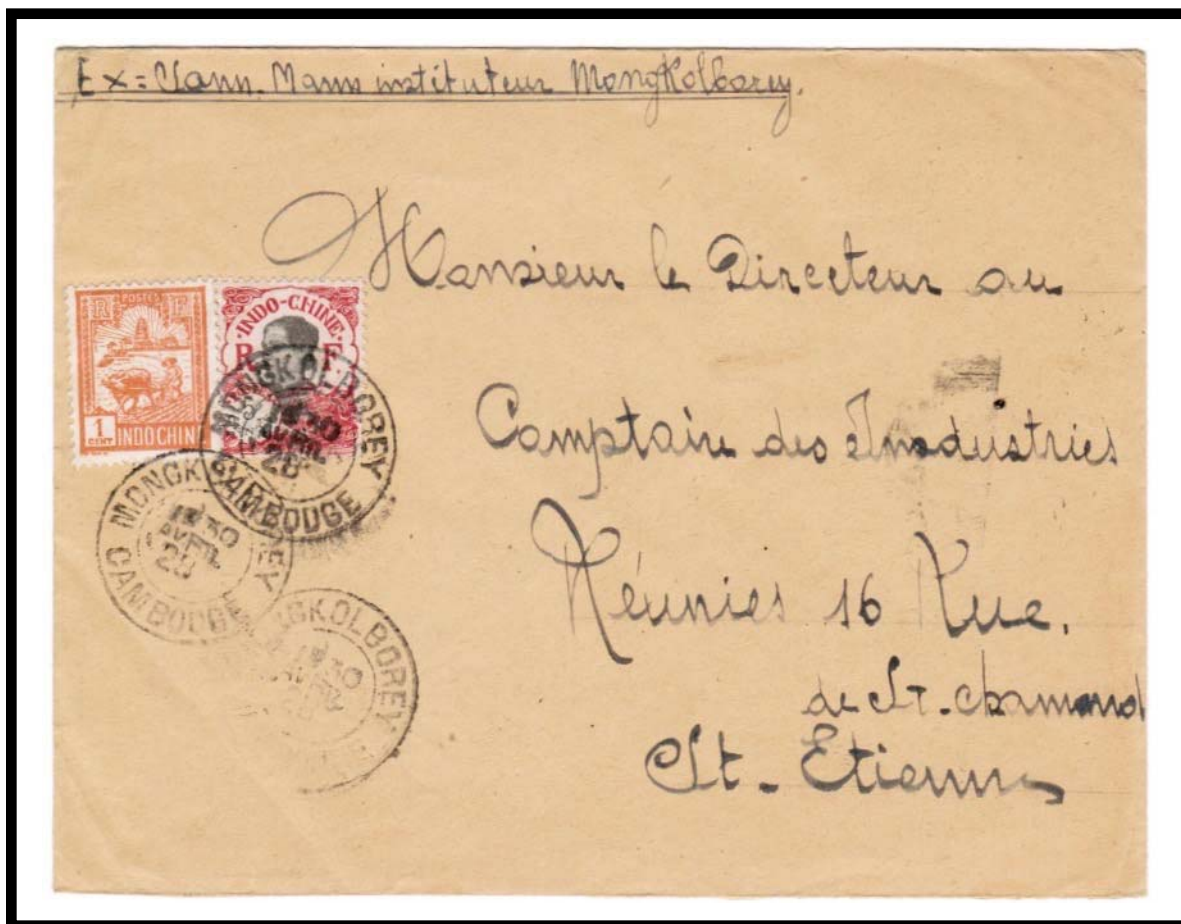 Ex = Mann instituteur Mongkolborey.
Monsieur le Directeur au
Comptoire des Industries
Réunies 16 Rue.
de St. chamond
St. Etienne
R POSTES F
1
CENT
INDOCHINE
INDO-CHINE
R F
MONGKOLBOREY
AVRIL
28
CAMBODGE
MONGKOLBOREY
AVRIL
28
CAMBODGE
MONGKOLBOREY